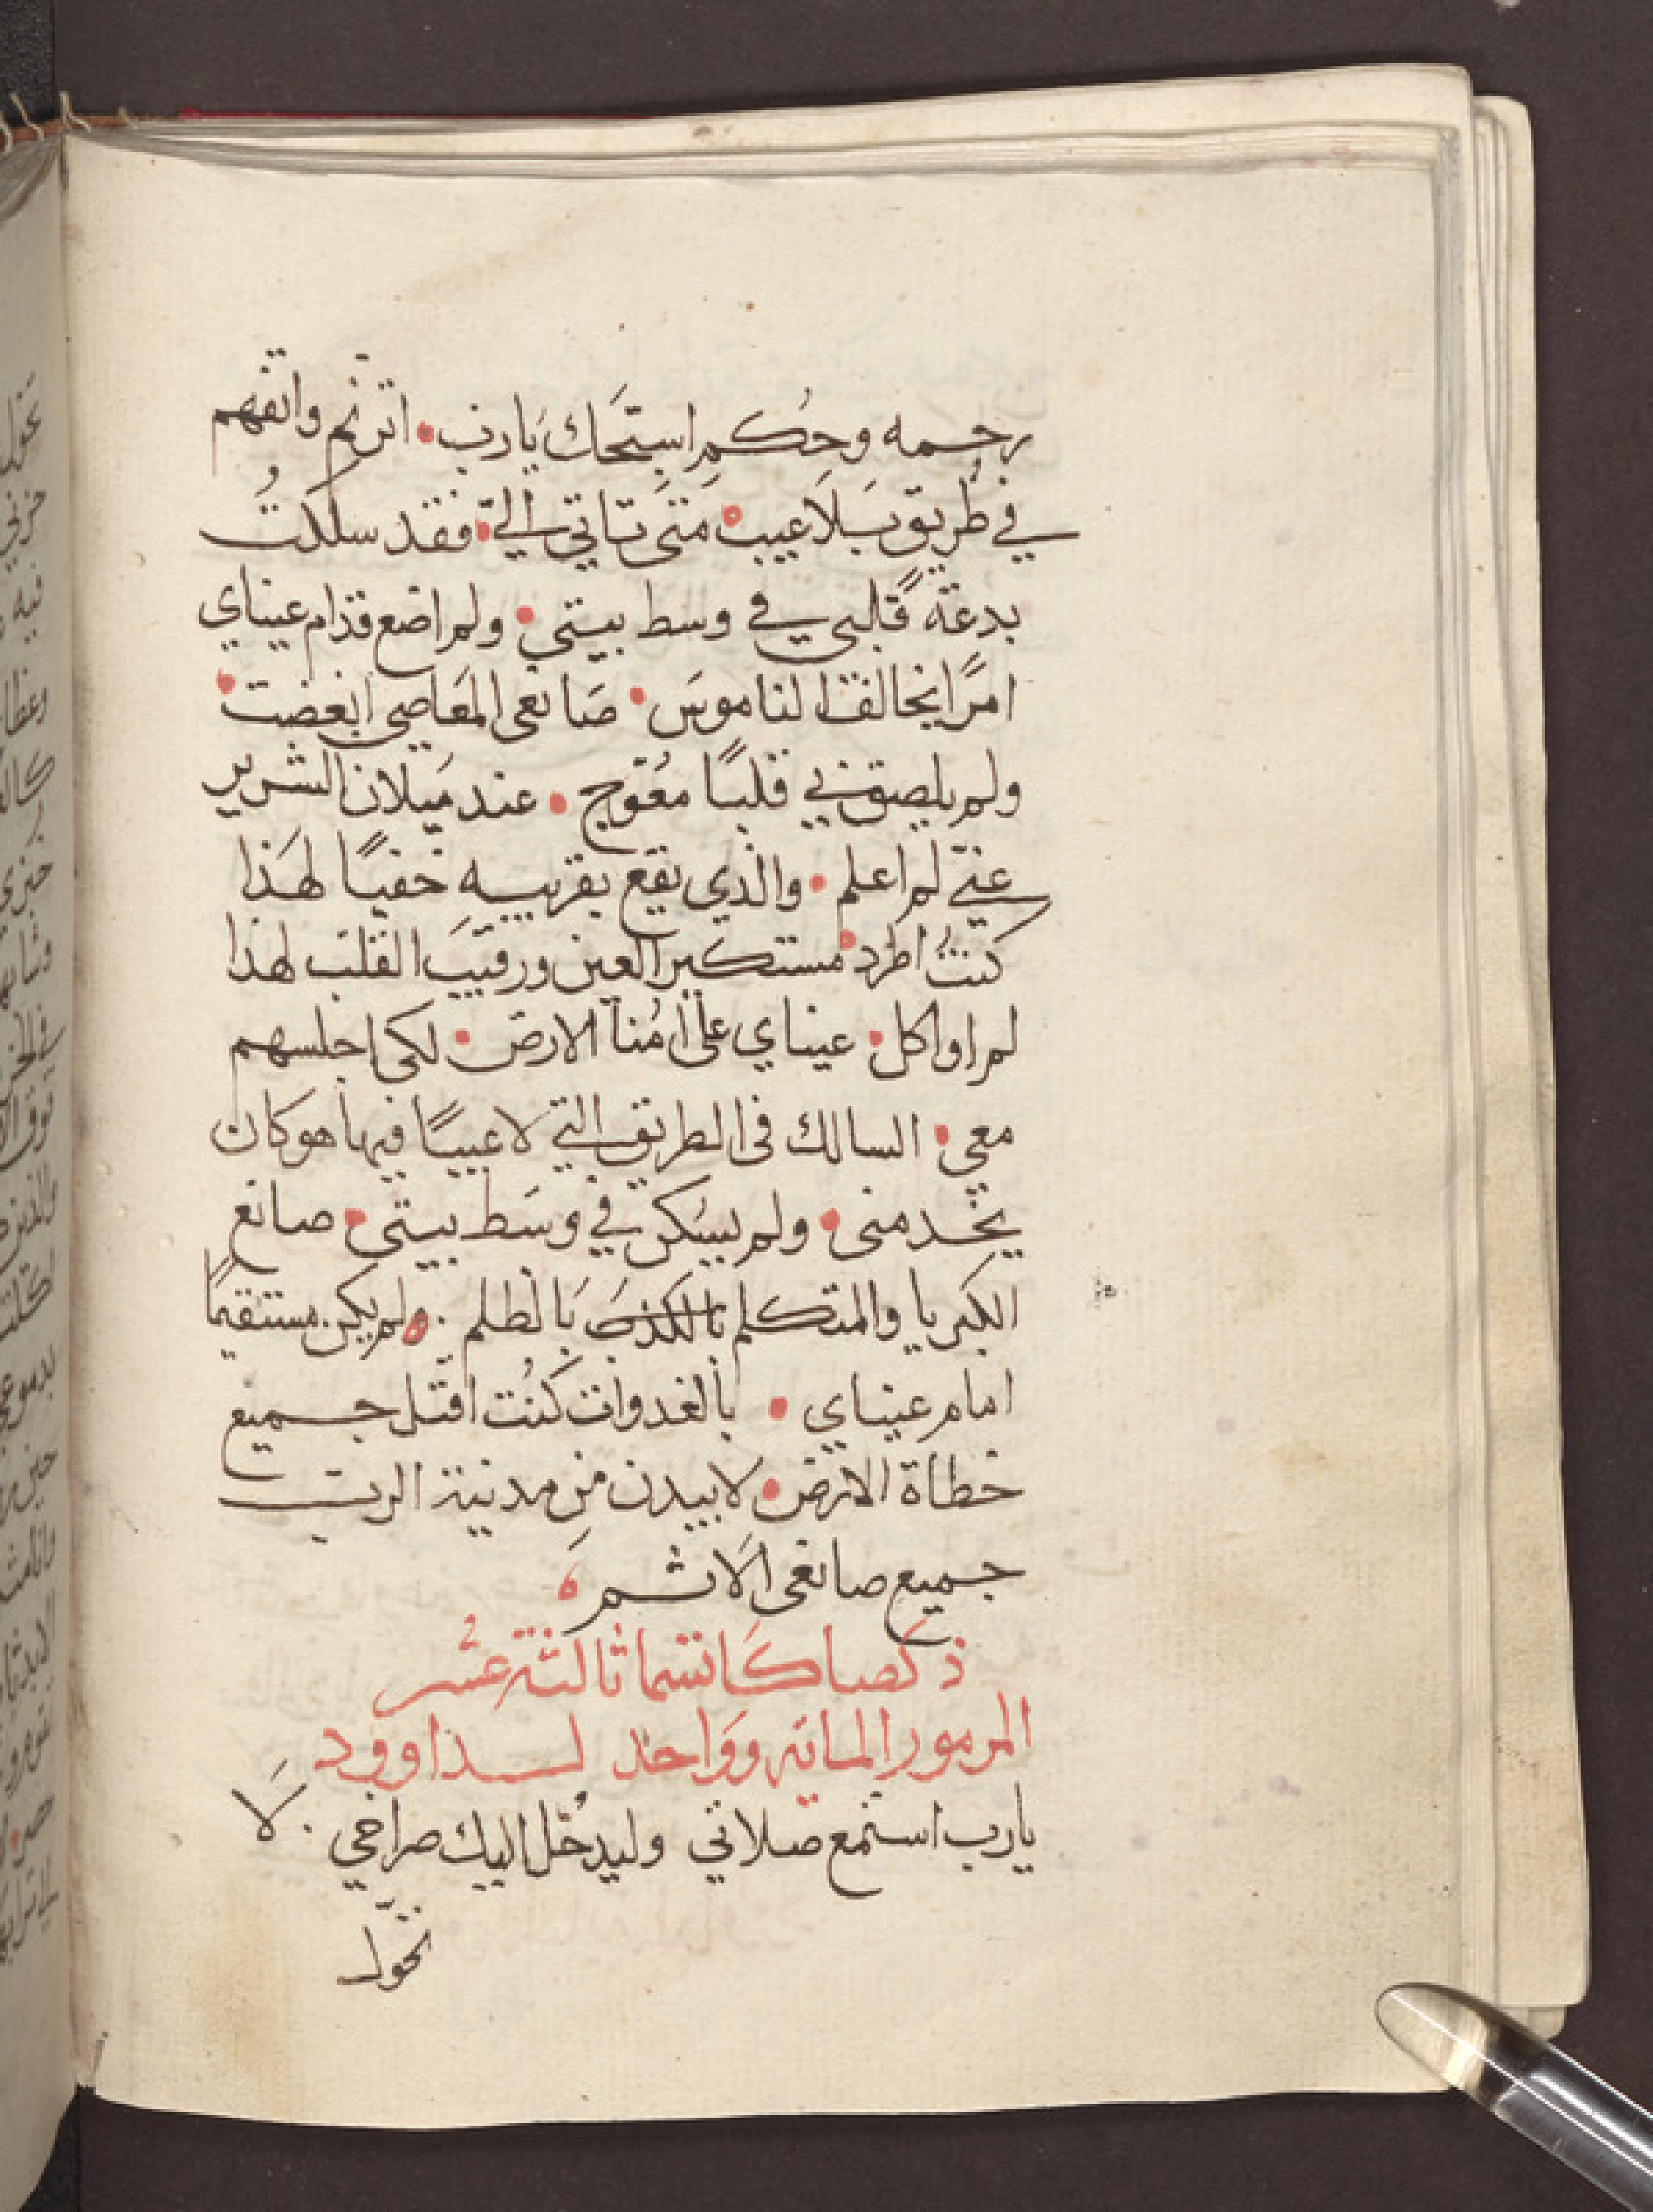 رحمه وحُكم اسبحَك يَارب• اترنم واتفهم
في طُريق بَلَا عيب• متىَ تاتي اليّ• فقد سلكتُ
بدعة قلبي في وسط بيتي• ولم اضع قدام عيناي
امرًا يخالف الناموسَ• صَانعى المَعَاصي ابغضت•
ولم يلصق بي قلبًا معُوج• عند مَيلان الشرير
عنّي لم اعلم• والذي يقع بقريبه خفيًا لهَذا
كنتُ اطرد• مستكبر العين ورقيبَ القلب لهذا
لم اواكل• عيناي على امُنا الارض• لكى اجلسهم
معي• السالك فى الطريق التي لا عيبًا فيها هو كان
يخدمنى• ولم يسَكن في وسَط بيتى• صانع
الكبريا والمتكلم بالكذبَ بَالظلم. ولم يكن مستقيمًا
امام عيناي • بالغدوات كنُت اقتل جميع
خطاة الارض• لابيدن من مدينة الرب
جميع صانعى الاثم
ذكصا كَاتسما ثالثة عشر
المزمور المايه ووَاحد لداوود
يارب استمع صلاتي وليدخُل اليك صراخي . لَا
تحوّل